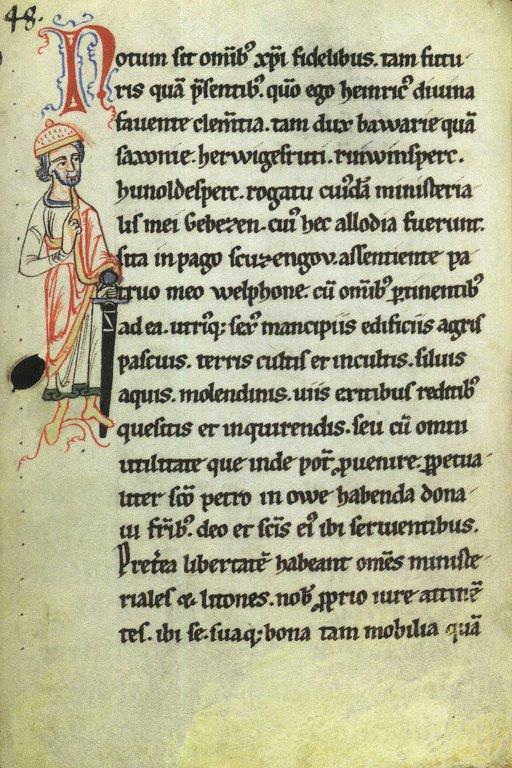 48.
Notum sit omĩbꝫ xp̃i fidelibus. tam futu
ris quã p̃sentibꝫ. quõo ego heinricꝰ diuina
fauente clem̃tia. tam dux bawarie quã
saxonie. herwigesruti. ruiwinsperc.
hunoldesperc. rogatu cuiꝰdã ministeria
lis mei Gebezen. cuiꝰ hec allodia fuerunt.
sita in pago scuzengov. assentiente pa
truo meo welphone. cũ omĩbꝰ ꝑtinentibꝰ
ad ea. utriꝰqꝫ sexꝰ mancipiis edificiis agris
pascuis. terris cultis et incultis. siluis
aquis. molendinis. uiis exitibus reditibꝰ
quesitis et inquirendis. seu cũ omni
utilitate que inde pot̃ ꝓuenire. ꝑpetua
liter sc̃o petro in owe habenda dona
ui fr̃ibꝰ. deo et sc̃is eiꝰ ibi seruientibus.
Pret̃ea libertatẽ habeant om̃es ministe
riales & litones. nob̃ ꝓprio iure attinẽ
tes. ibi se. suaqꝫ bona tam mobilia quã